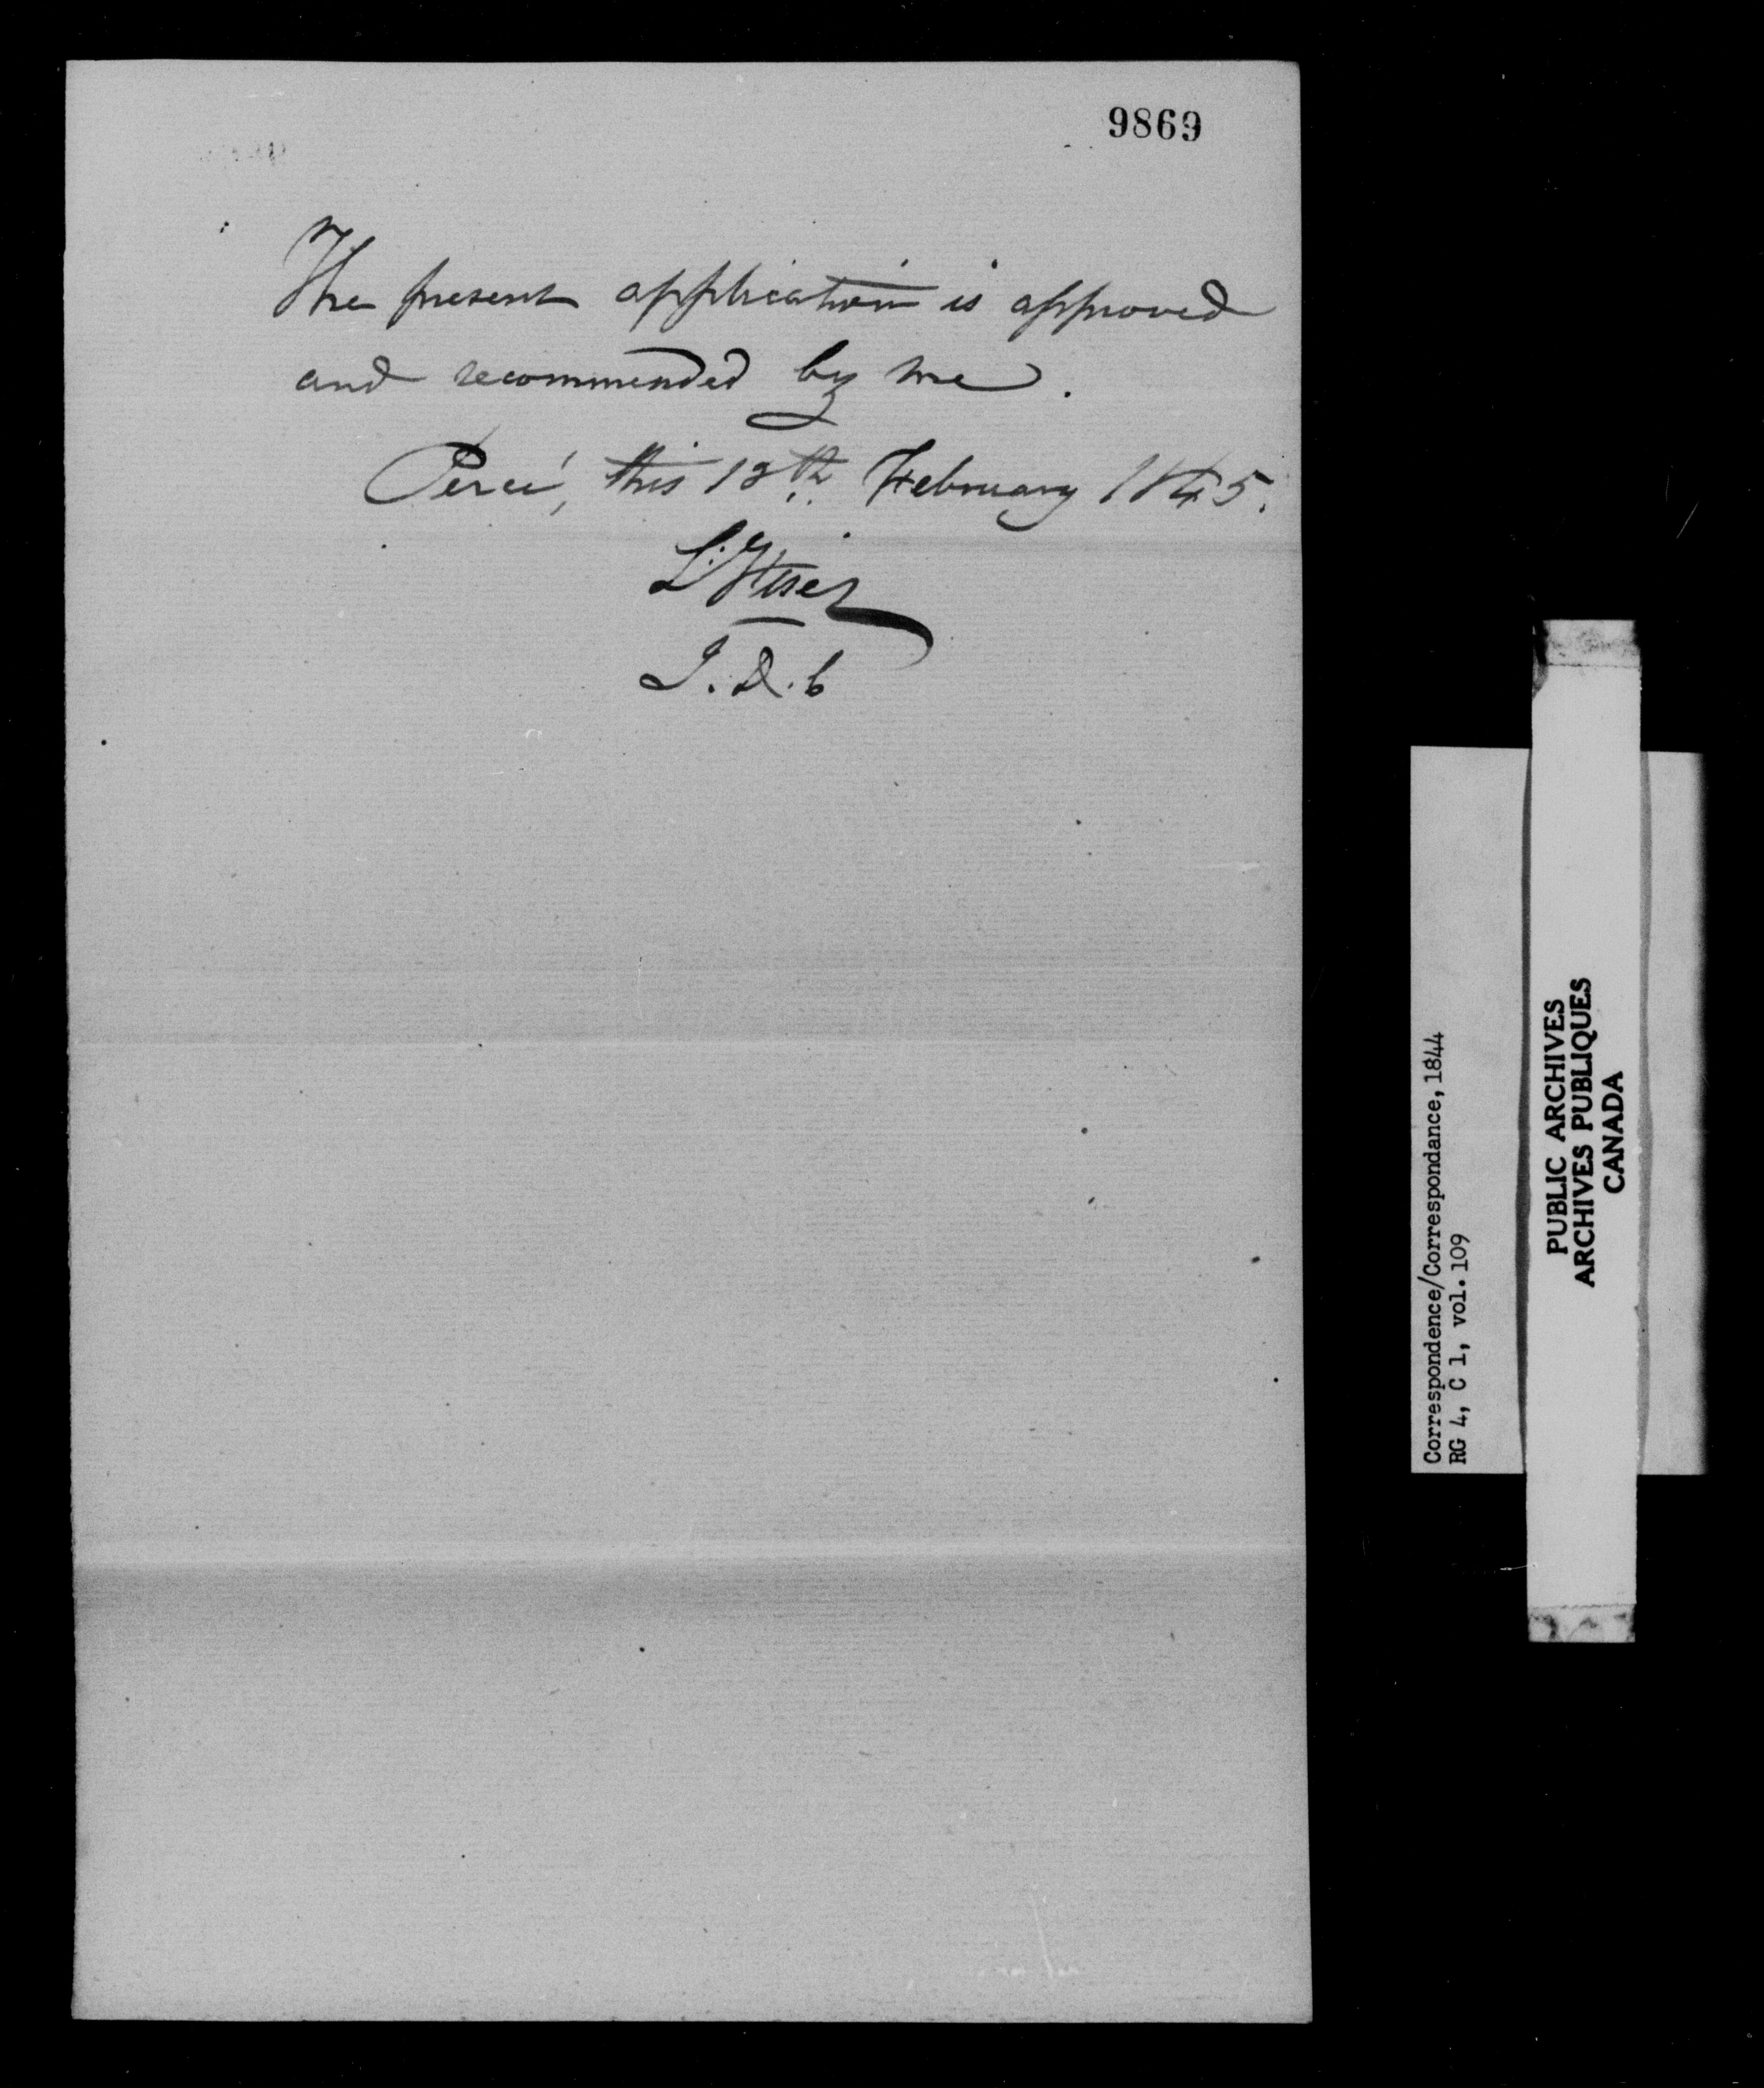 9869
The present application is approved
and recommended by me.
Percé, this 13th February 1845.
J. D. C
Correspondence/Correspondance, 1844
RG 4, C 1, vol. 109
PUBLIC ARCHIVES
ARCHIVES PUBLIQUES
CANADA